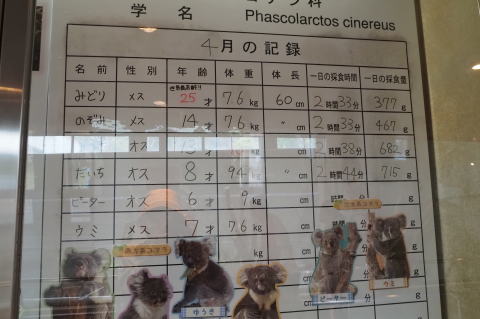 コアラ科
学名 Phascolarctos cinereus
4月の記録
名前 性別 年齢 体重 体長 一日の採食時間 一日の採食量
みどり メス 世界最高齢 25才 7.6kg 60cm 2時間33分 377g
のぞみ メス 14才 7.6kg 〃cm 2時間33分 467g
オス 才 kg cm 2時間38分 682g
だいち オス 8才 9.4kg 〃cm 2時間44分 715g
ピーター オス 6才 9kg cm 時間 分 g
ウミ メス 7才 7.6kg cm 時間 分 g
kg cm 分 g
南方系コアラ
ゆうき
ピーター
ウミ
cm 分 g